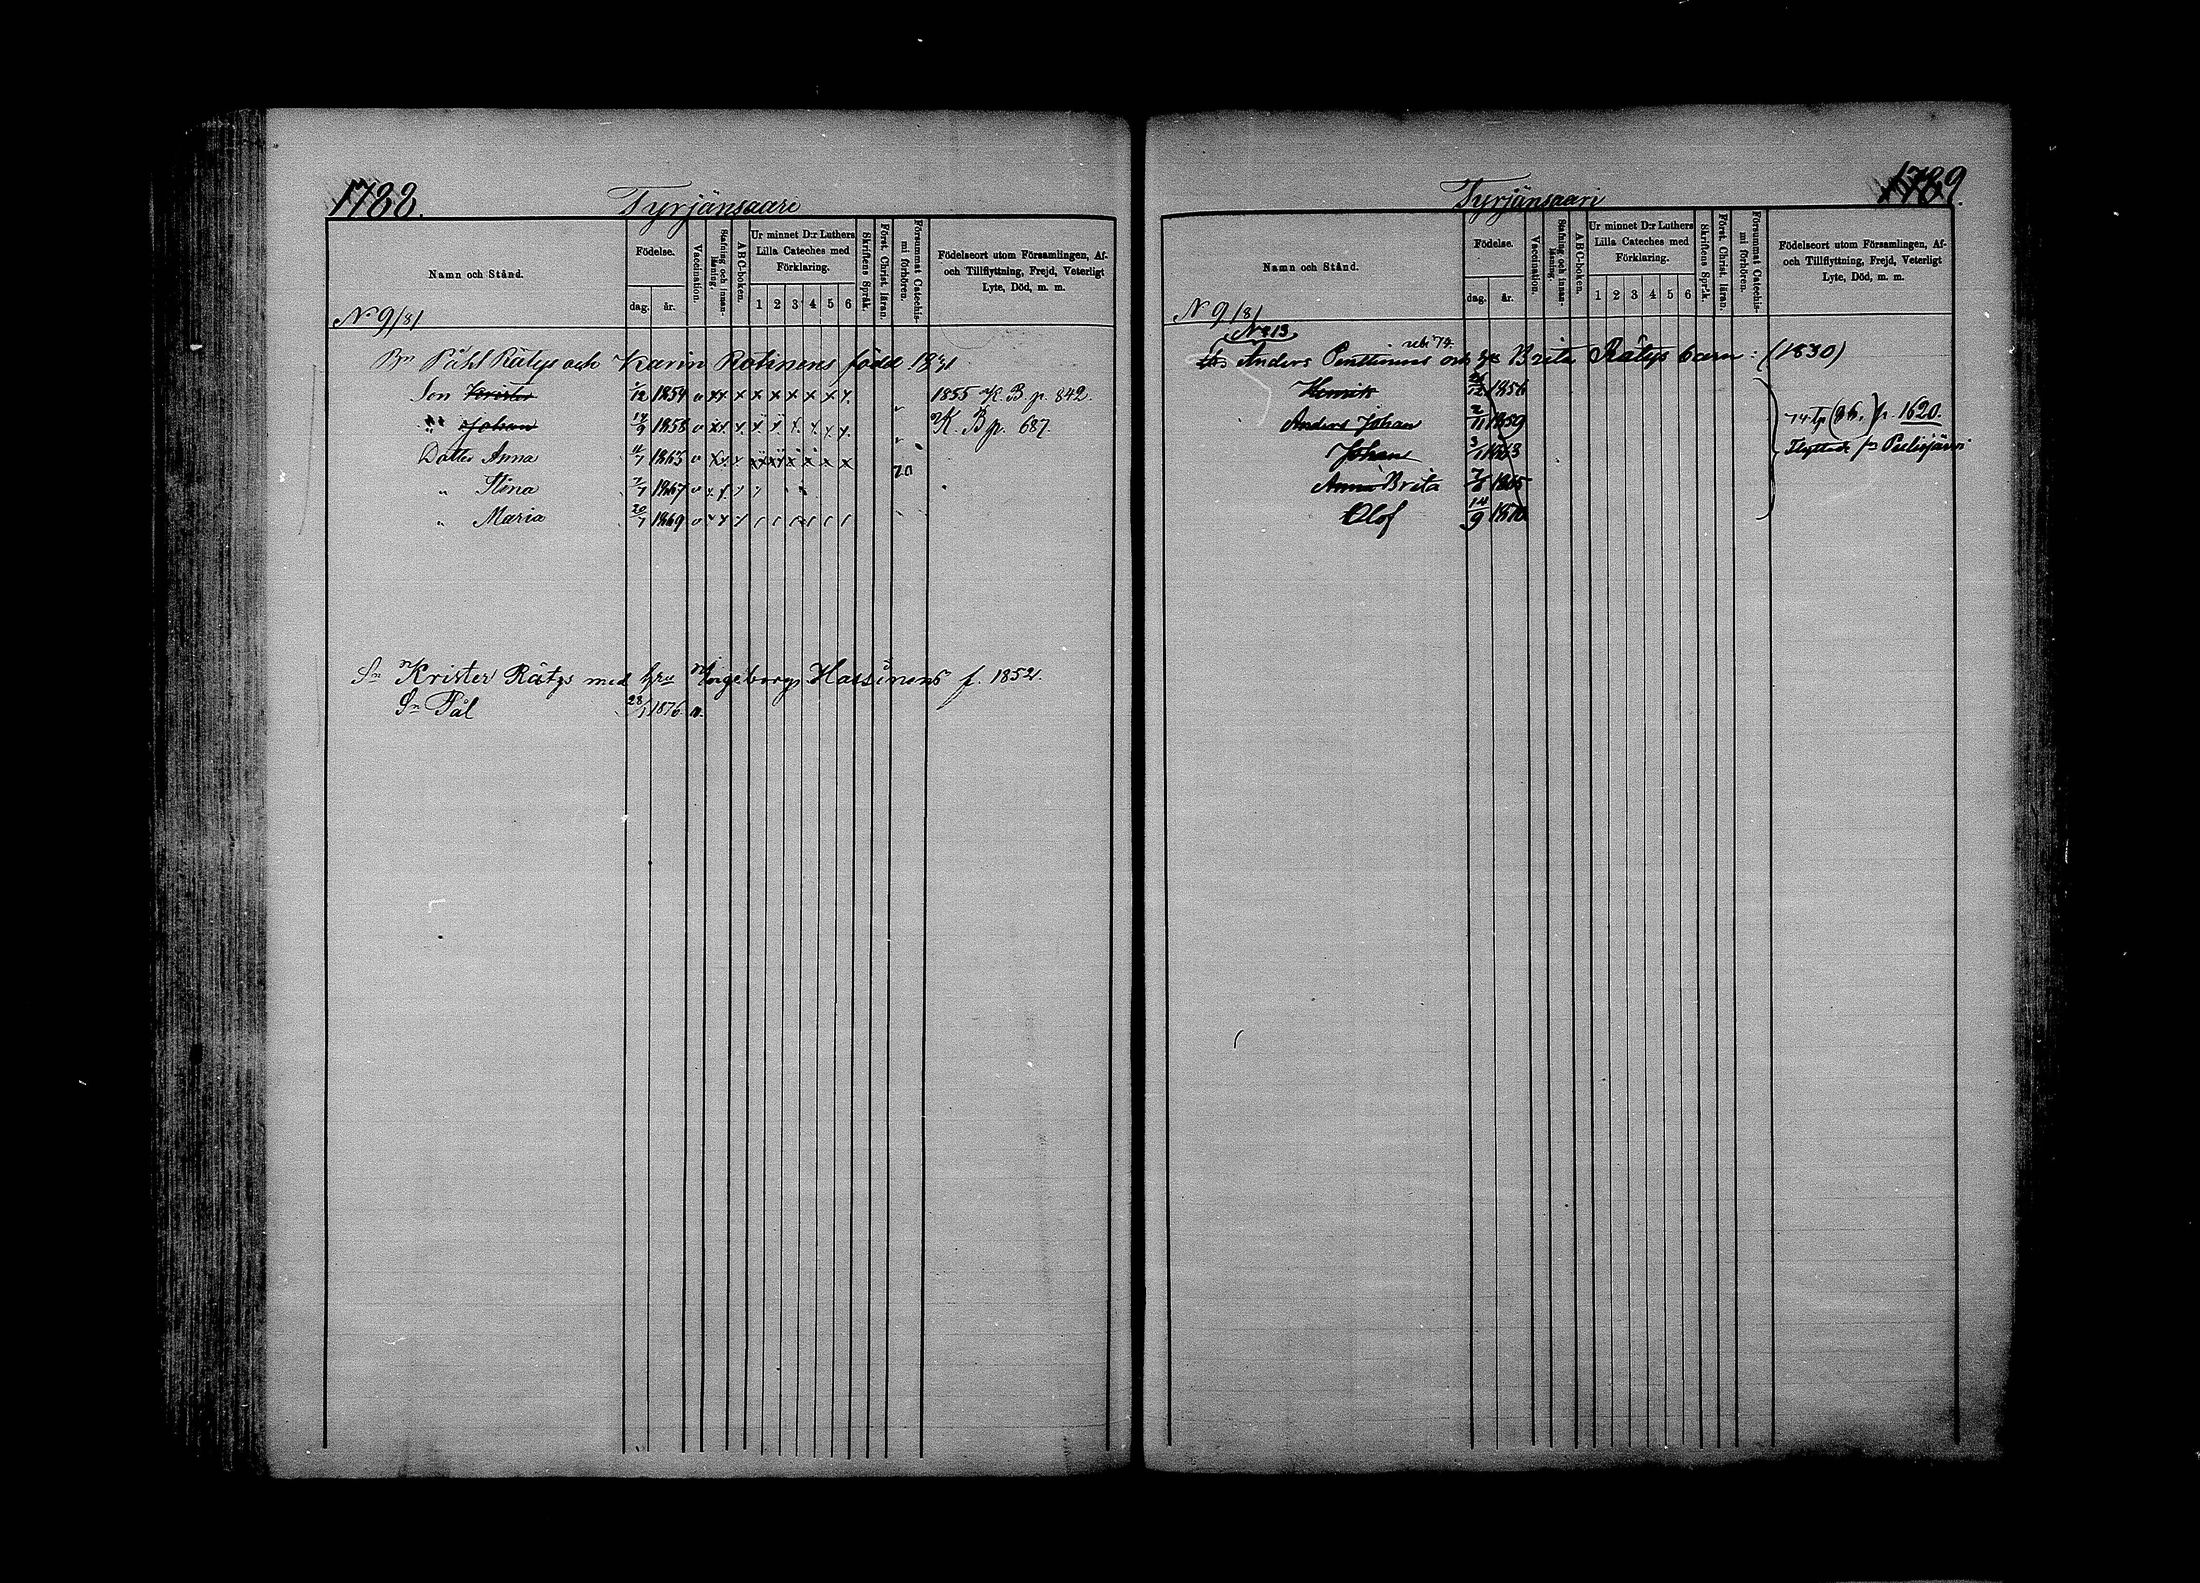 1788.
Tyrjänsaari
Namn och Stånd.
Födelse.
dag.
år.
Vaccination.
Stafning och innanläsning.
ABC-boken.
Ur minnet D:r Luthers
Lilla Cateches med
Förklaring.
1 2 3 4 5 6
Skriftens Språk.
Först. Christ. läran.
Försummat Catechismi förhören.
Födelseort utom Församlingen, Af-
och Tillflyttning, Frejd, Veterligt
Lyte, Död, m. m.
N 9/81
Bn Påhl Rätys och Karin Rotinens född
Son Krister 1/12 1854 1855 K. B. p. 842.
" Johan 14/9 1858 K. B p. 687.
Dotter Anna 4/7 1863 70
" Stina 7/7 1867
" Maria 20/7 1869
Sn Krister Rätys med hru Ingeborg Hassinens f. 1852.
Sn Pål 28/1 1876.
Tyrjänsaari
1789.
Namn och Stånd.
Födelse.
dag.
år.
Vaccination.
Stafning och innanläsning.
ABC-boken.
Ur minnet D:r Luthers
Lilla Cateches med
Förklaring.
1 2 3 4 5 6
Skriftens Språk.
Först. Christ. läran.
Försummat Catechismi förhören.
Födelseort utom Församlingen, Af-
och Tillflyttning, Frejd, Veterligt
Lyte, Död, m. m.
N 9/81
No 13
Anders Penttinens och Brita Rätys barn: (1830)
Henrik 26/12 1856
Anders Johan 2/11 1859 p. 1620.
Johan 3/1 1863 Flyttade
Anna Brita 1865
Olof 14/9 1870